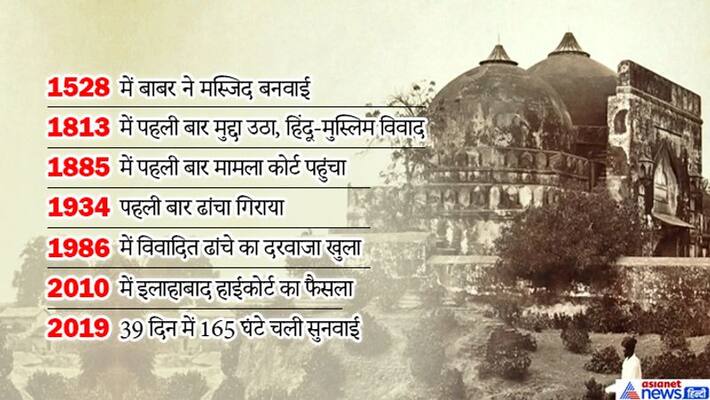 1528 में बाबर ने मस्जिद बनवाई
1813 में पहली बार मुद्दा उठा, हिंदू-मुस्लिम विवाद
1885 में पहली बार मामला कोर्ट पहुंचा
1934 पहली बार ढांचा गिराया
1986 में विवादित ढांचे का दरवाजा खुला
2010 में इलाहाबाद हाईकोर्ट का फैसला
2019 39 दिन में 165 घंटे चली सुनवाई
asianet
news हिन्दी